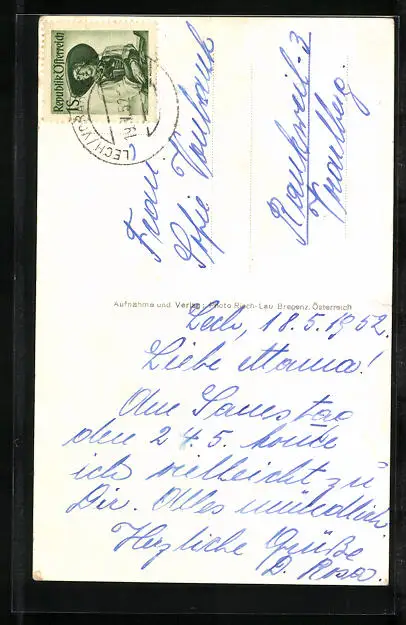 Republik Österreich
1S
LECH/VOR
Frau
Sofie Vonbrank
Rankweil-3
Vrarlberg.
Aufnahme und Verlag: Photo Risch-Lau Bregenz, Österreich
Lech, 18.5.1952.
Liebe Mama!
Am Samstag
den 24.5. komme
ich vielleicht zu
Dir. Alles mündlich.
Herzliche Grüße
D. Rosa.